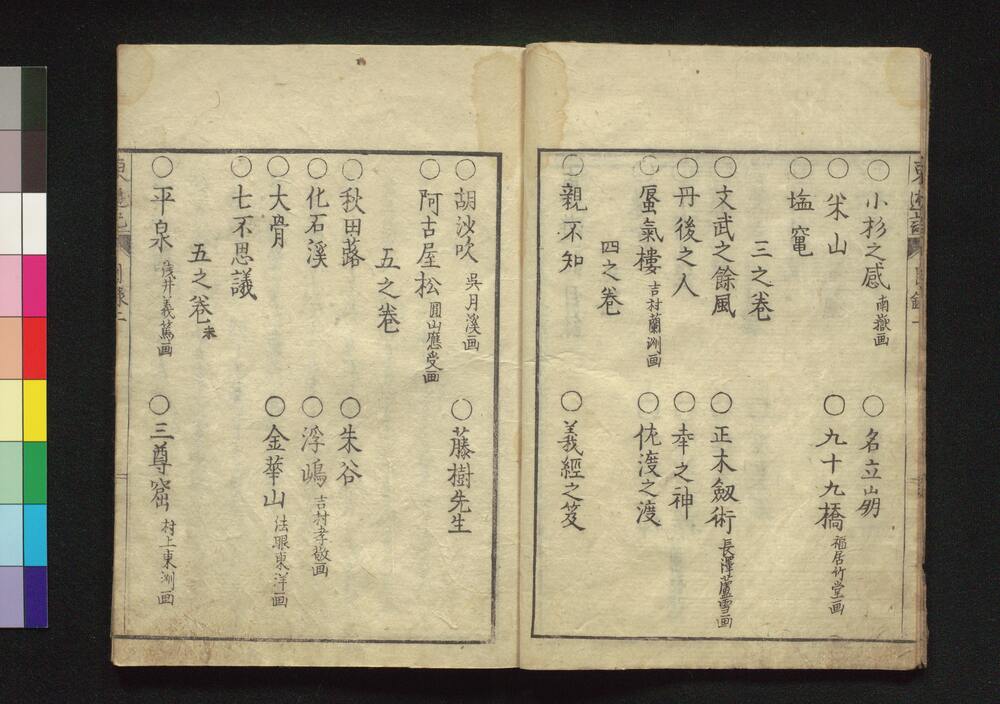 ○小杉之感 南嶽画
○名立崩
○米山
○九十九橋 福居竹堂画
○塩竃
三之巻
○文武之餘風
○正木劔術 長澤蘆雪画
○丹後之人
○幸之神
○蜃氣樓 吉村蘭洲画
○佐渡之渡
四之巻
○親不知
○義經之笈
○胡沙吹 呉月溪画
○藤樹先生
○阿古屋松 圓山應受画
五之巻
○秋田蕗
○朱谷
○化石溪
○浮嶋 吉村孝敬画
○大骨
○金華山 法眼東洋画
○七不思議
五之巻 末
○平泉 浅井義篤画
○三尊窟 村上東洲画